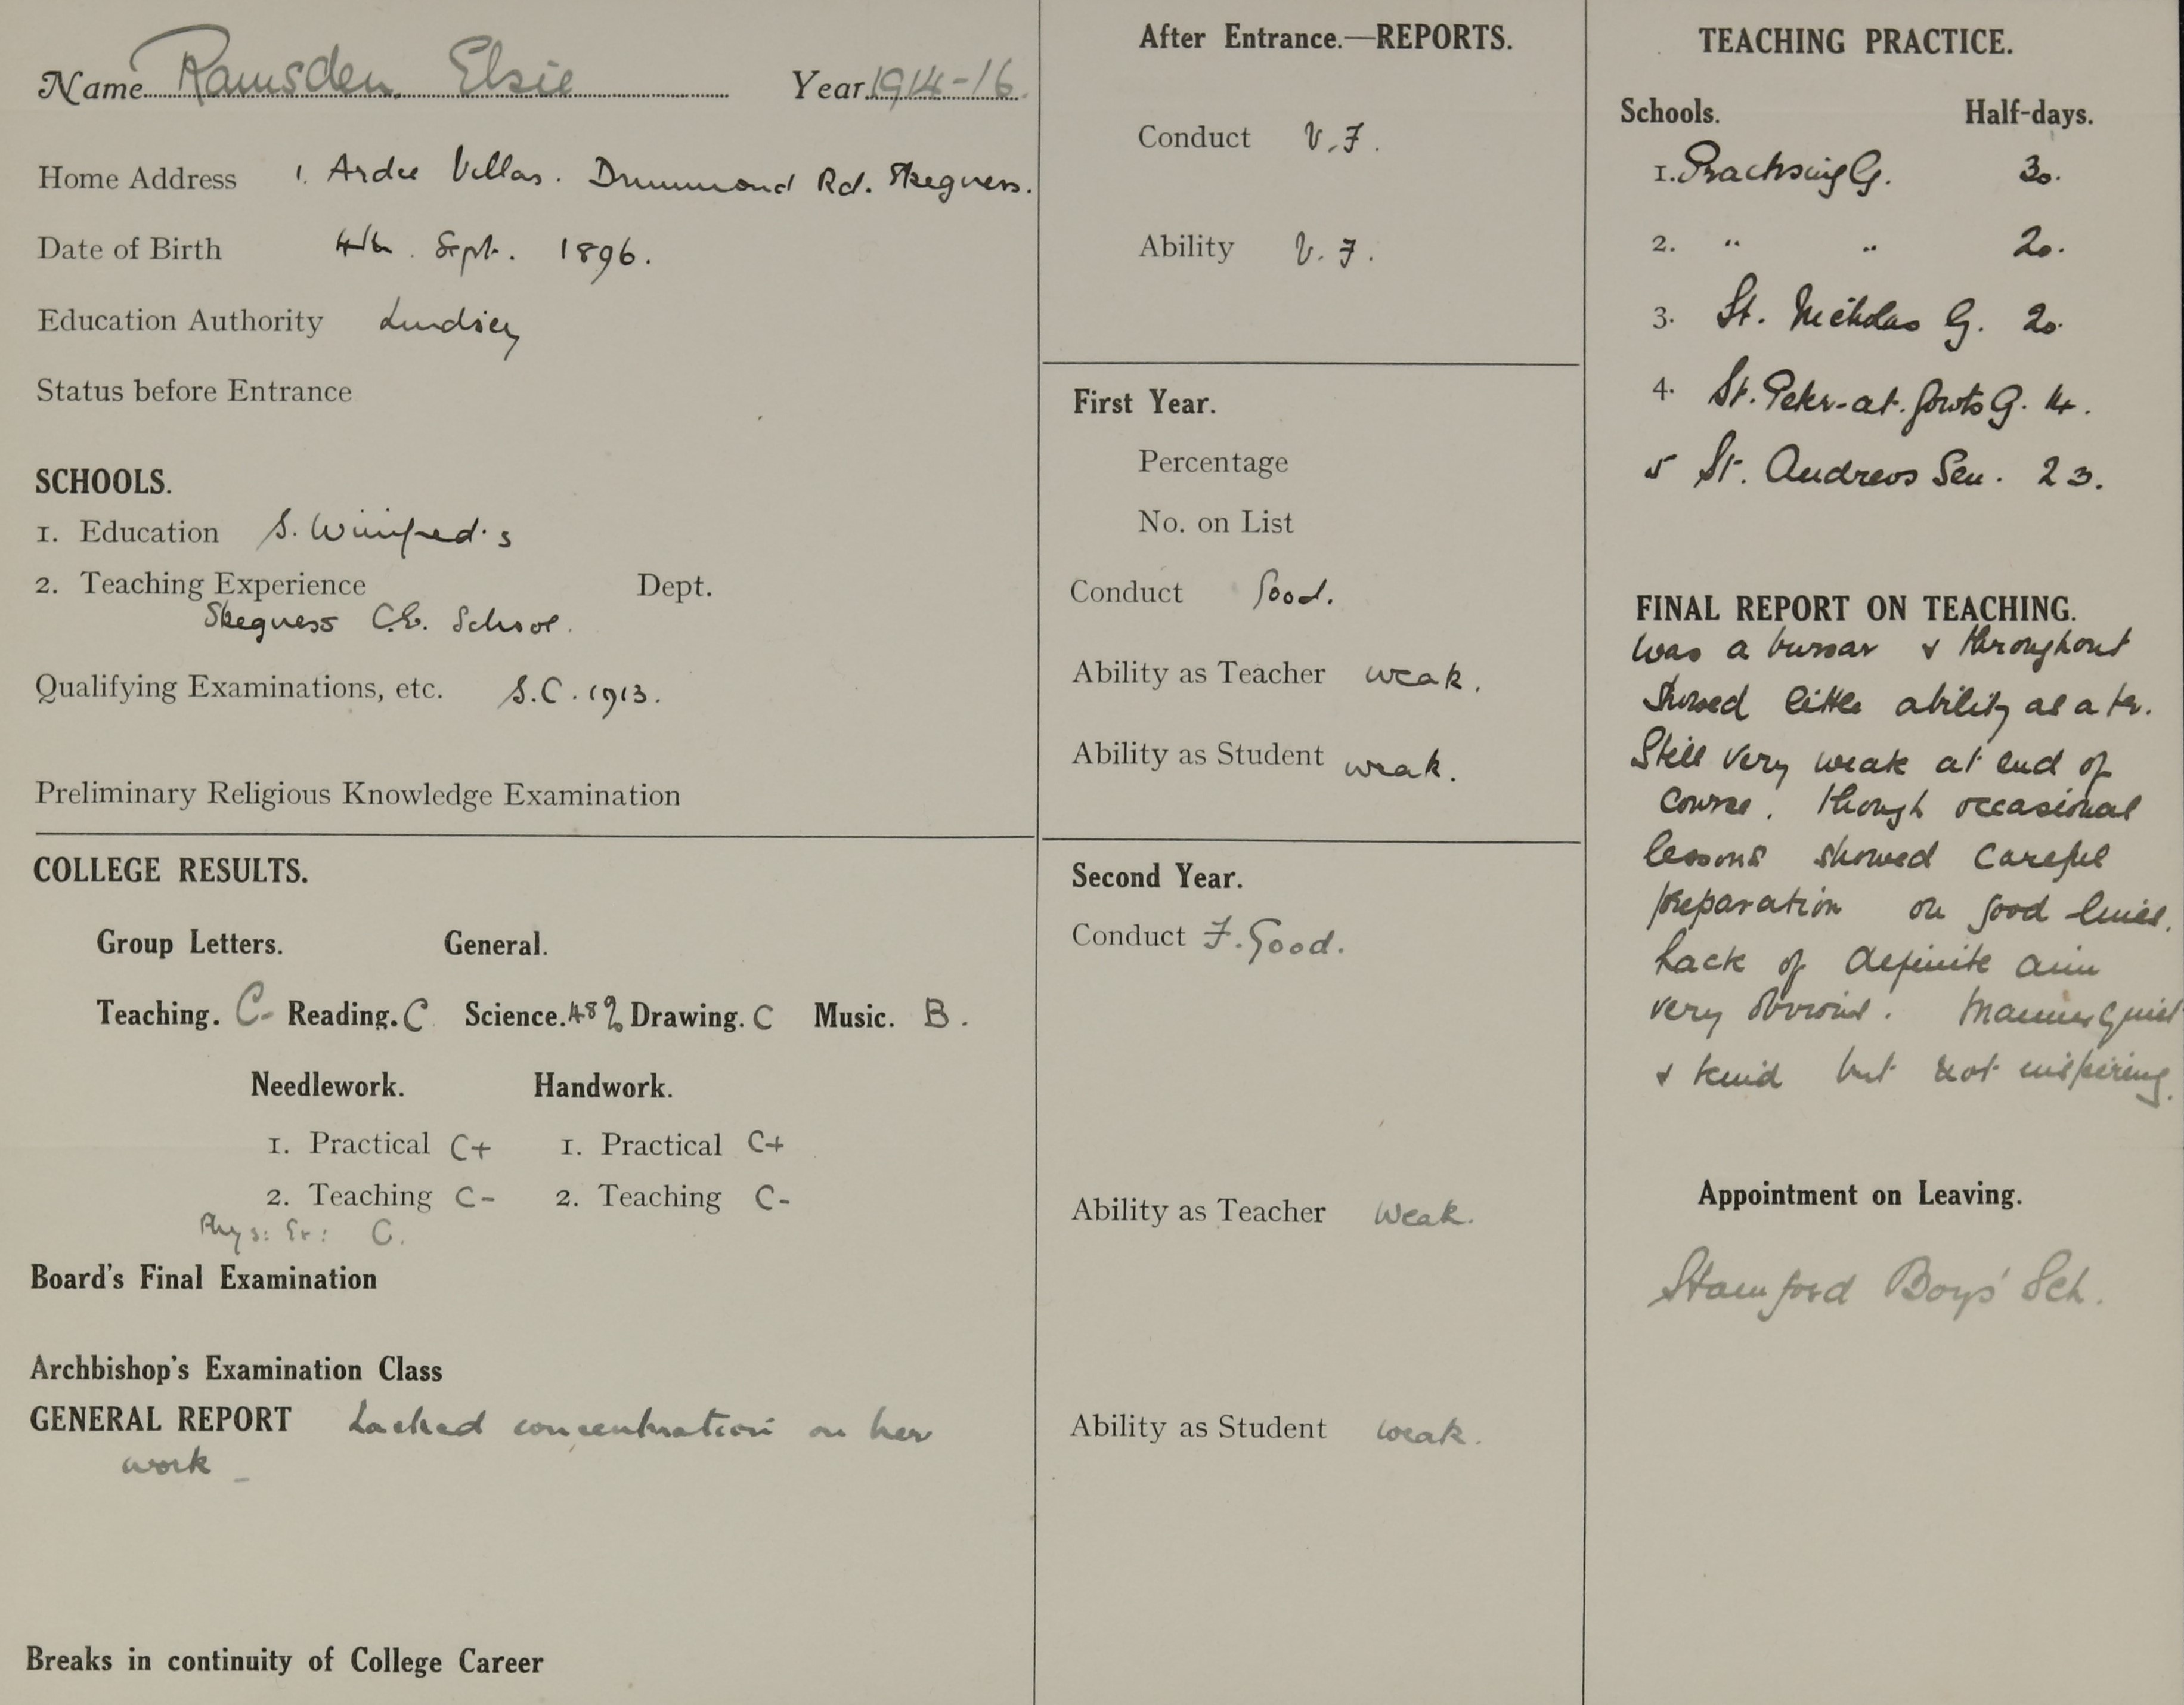 Name Ramsden Elsie Year 1914-16.
Home Address 1. Ardee Villas. Drummond Rd. Skegness.
Date of Birth 4th. Sept. 1896.
Education Authority Lindsey
Status before Entrance
SCHOOLS.
1. Education S. Winifred's
2. Teaching Experience Dept.
Skegness C.E. School.
Qualifying Examinations, etc. S.C. 1913.
Preliminary Religious Knowledge Examination
COLLEGE RESULTS.
Group Letters. General.
Teaching. C- Reading. C Science. 48% Drawing. C Music. B.
Needlework. Handwork.
1. Practical C+ 1. Practical C+
2. Teaching C- 2. Teaching C-
Phys: Ex: C.
Board's Final Examination
Archbishop's Examination Class
GENERAL REPORT Lacked concentration on her
work -
Breaks in continuity of College Career
After Entrance.—REPORTS.
Conduct V.F.
Ability V.F.
First Year.
Percentage
No. on List
Conduct Good.
Ability as Teacher weak.
Ability as Student weak.
Second Year.
Conduct F. Good.
Ability as Teacher Weak.
Ability as Student weak.
TEACHING PRACTICE.
Schools. Half-days.
1. Practising G. 30.
2. " " 20.
3. St. Nicholas G. 20.
4. St. Peter-at-Gowts G. 14.
5 St. Andrews Sen. 23.
FINAL REPORT ON TEACHING.
Was a bursar & throughout
showed little ability as a tr.
Still very weak at end of
course, though occasional
lessons showed careful
preparation on good lines.
Lack of definite aim
very obvious. Manner quiet
& kind but not inspiring.
Appointment on Leaving.
Stamford Boys' Sch.